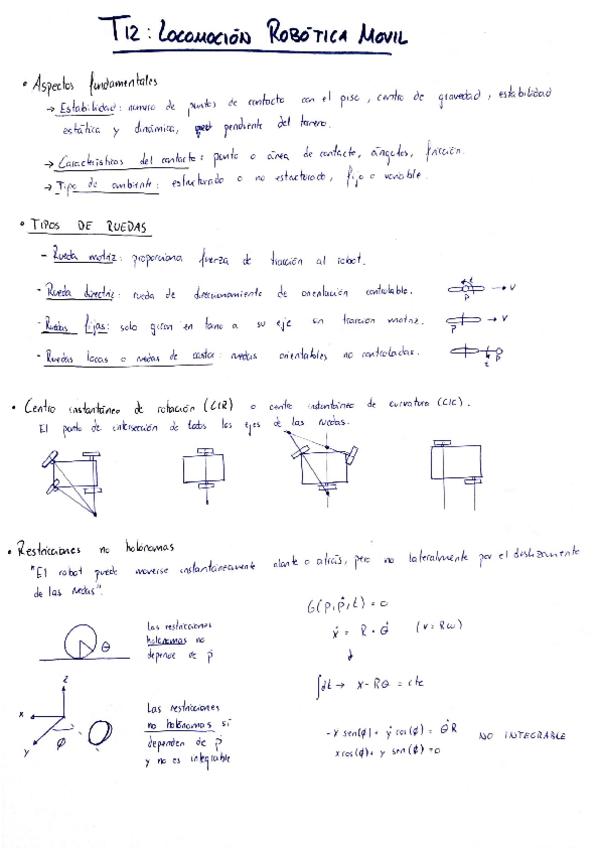 T12: LOCOMOCIÓN ROBÓTICA MOVIL
• Aspectos fundamentales
→ Estabilidad: numero de puntos de contacto con el piso, centro de gravedad, estabilidad
estática y dinámica, pendiente del terreno.
→ Características del contacto: punto o área de contacto, ángulos, fricción.
→ Tipo de ambiente: estructurado o no estructurado, fijo o variable.
• TIPOS DE RUEDAS
- Rueda motriz: proporciona fuerza de tracción al robot.
- Rueda directriz: rueda de direccionamiento de orientación controlable.
- Ruedas fijas: solo giran en torno a su eje sin tracción motriz.
- Ruedas locas o ruedas de castor: ruedas orientables no controladas.
t
P
V
P
V
t
P
• Centro instantáneo de rotación (CIR) o centro instantáneo de curvatura (CIC).
El punto de intersección de todos los ejes de las ruedas.
• Restricciones no holónomas
"El robot puede moverse instantáneamente alante o atrás, pero no lateralmente por el deslizamiento
de las ruedas".
θ
Las restricciones
holonomas no
depende de ṗ
G(p,ṗ,t) = 0
ẋ = R · θ̇ (v = Rω)
∫dt → x - Rθ = cte
z
x
y
ϕ
Las restricciones
no holónomas sí
dependen de ṗ
y no es integrable
-ẋ sen(ϕ) + ẏ cos(ϕ) = θ̇R
ẋ cos(ϕ) + ẏ sen(ϕ) = 0
NO INTEGRABLE